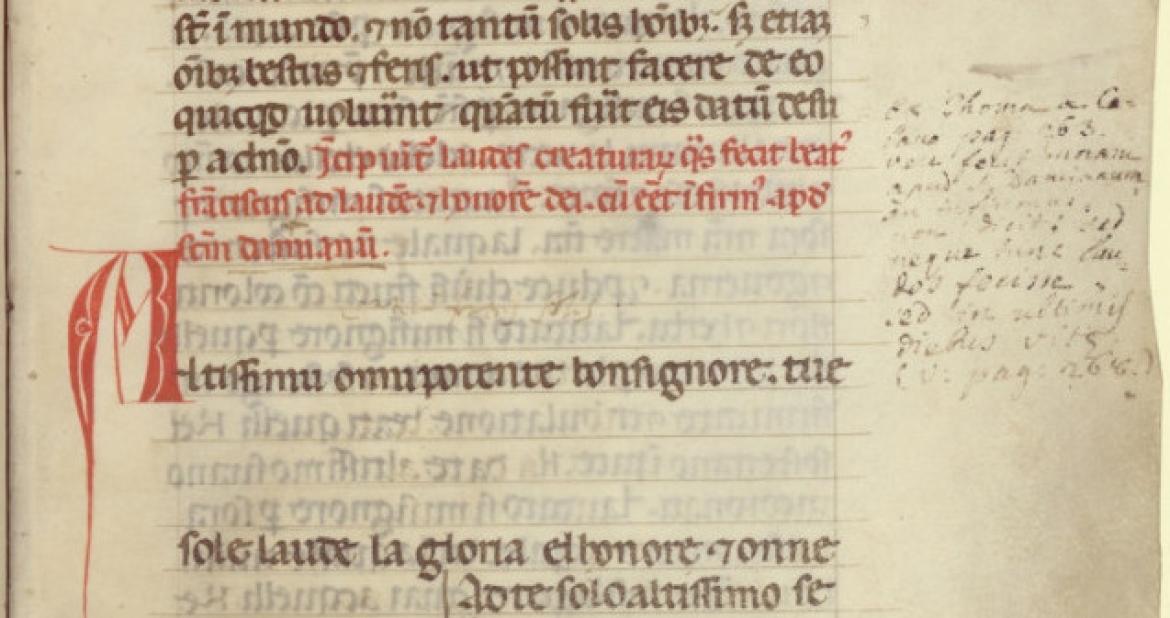 st̄ ī mundo. ⁊ nō tantū solis hōībꝫ. sꝫ etiaꝫ
oībꝫ bestiis ⁊ feris. ut possint facere de eo
quicqd uoluīnt quātū fiūt eis datū desu
ꝑ a dn̄o. Īcipiūt laudes creaturaꝝ q̄s fecit beatꝰ
frāciscus ad laudē ⁊ honorē dei. cū eēt ī firmꝰ apd
scm̄ damianū.
Altissimu omnipotente bonsignore. tue
sole laude la gloria elhonore ⁊ onne
Ad te solo altissimo se
de Thoma a Ce-
lano pag 263.
apud S. Damianum
neque hunc lau-
sed in ultimis
diebus vitę
(v: pag: 268.)